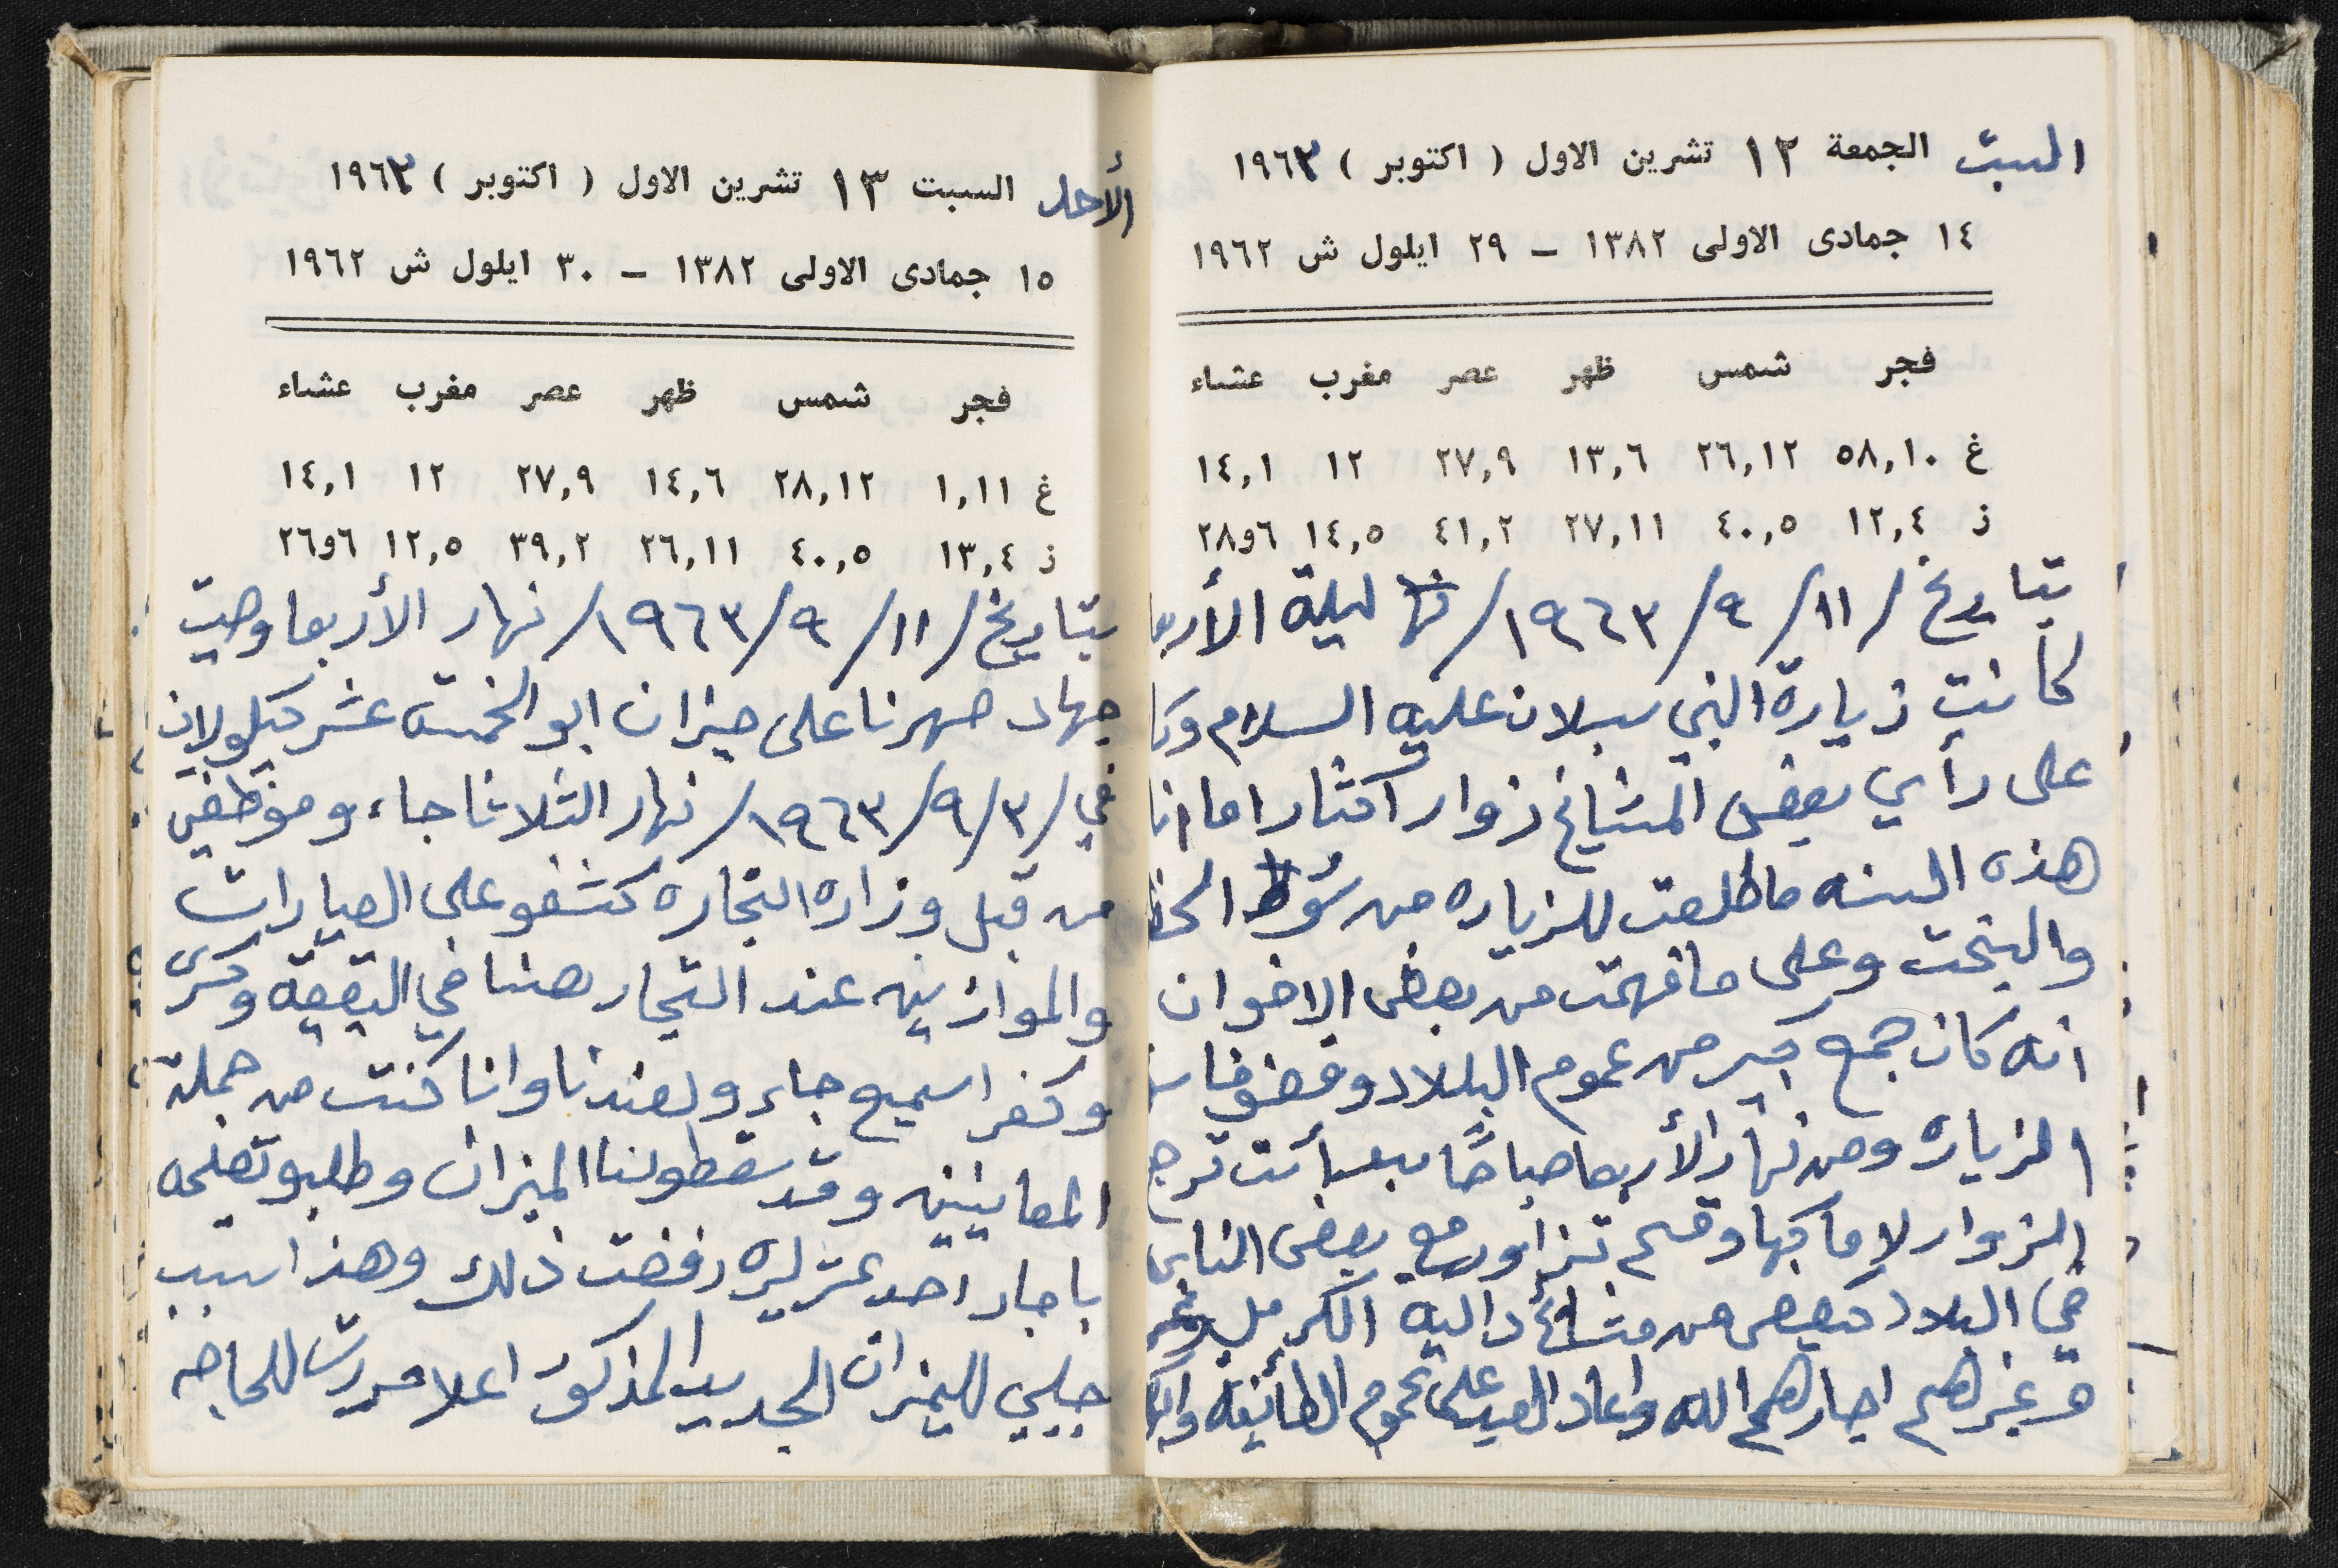 السبت الجمعة ١٢ تشرين الاول ( اكتوبر ) ١٩٦٣
١٤ جمادى الاولى ١٣٨٢ – ٢٩ ايلول ش ١٩٦٢
فجر شمس ظهر عصر مغرب عشاء
غ ٥٨,١٠ ٢٦,١٢ ١٣,٦ ٢٧,٩ ١٢ ١٤,١
ز ١٢,٤ ٤٠,٥ ٢٧,١١ ٤١,٢ ١٤,٥ ٦و٢٨
بتاريخ /١١/ ٩/ ١٩٦٣/ ليلة الأربعا
كانت زيارة النبي سبلان عليه السلام
على رأي بعض المشايخ زوار اكثار اما انا
هذه السنه ما طلعت للزياره من سؤ الحظ
والبخت وعلى ما فهمت من بعض الاخوان
انه كان جمع كبير من عموم البللاد وقضو
الزياره ومن نهار الأربعا صباحًا بدأت
الزوار لاماكنها وقسم تزاور مع بعض الناس
في البلاد كبعض من مشائخ دالية الكرمل
وغيرهم اجارهم الله واعاد العيد على عموم الطائيفه
الأحد السبت ١٣ تشرين الاول ( اكتوبر ) ١٩٦٣
١٥ جمادى الاولى ١٣٨٢ – ٣٠ ايلول ش ١٩٦٢
فجر شمس ظهر عصر مغرب عشاء
غ ١,١١ ٢٨,١٢ ١٤,٦ ٢٧,٩ ١٢ ١٤,١
ز ١٣,٤ ٤٠,٥ ٢٦,١١ ٣٩,٢ ١٢,٥ ٦و٢٦
بتاريخ /١١/ ٩/ ١٩٦٣/ نهار الأربعا وصيت
جهاد صهرنا على ميزان ابو الخمست عشر كيلو لان
في /٣/ ٩/ ١٩٦٣/ نهار الثلاثا جاء و موظفين
من قبل وزاره التجاره كشفو على العيارات
والموازيين عند التجار هنا في البقيعه وكسرى
وكفر اسميع جاء و لعندنا وانا كنت من جملة
المعاينيين وقد سقطو لنا الميزان وطلبو تصليحه
باجار احد عشر ليره رفضت ذلك وهذا سبب
جلبي للميزان الجديد المذكور اعلا للحاجه